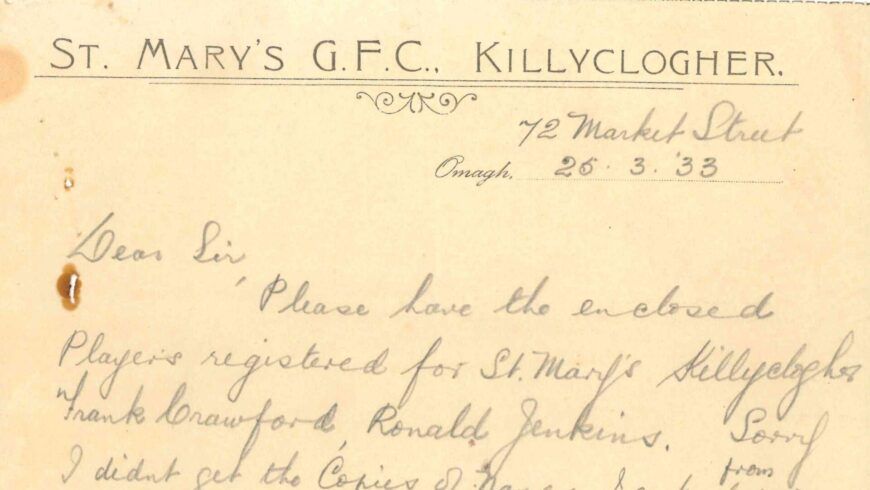 ST. MARY'S G.F.C., KILLYCLOGHER.
72 Market Street
Omagh, 25. 3. '33
Dear Sir,
Please have the enclosed
Players registered for St. Mary's Killyclogher
Frank Crawford, Ronald Jenkins. Sorry
I didnt get the Copies of
from